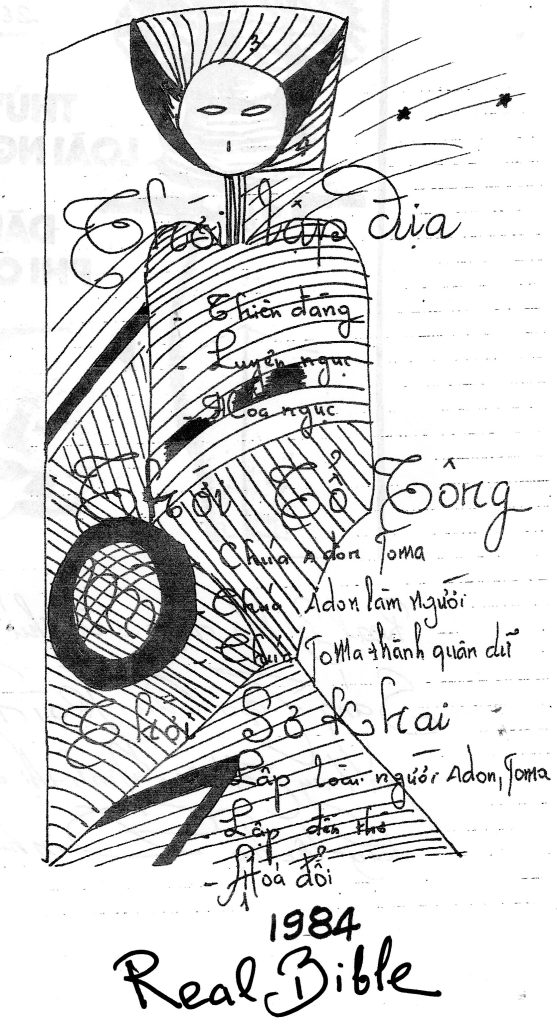 3
4
Thời lập địa
- Thiên đàng
- Luyện ngục
- Hỏa ngục
Thời Tổ Tông
- Chúa Adon Toma
- Chúa Adon làm người
- Chúa Toma thành quân dữ
Thời Sơ Khai
- Lập loài người Adon, Toma
- Lập đền thờ
- Hoá đổi
1
1984
Real Bible